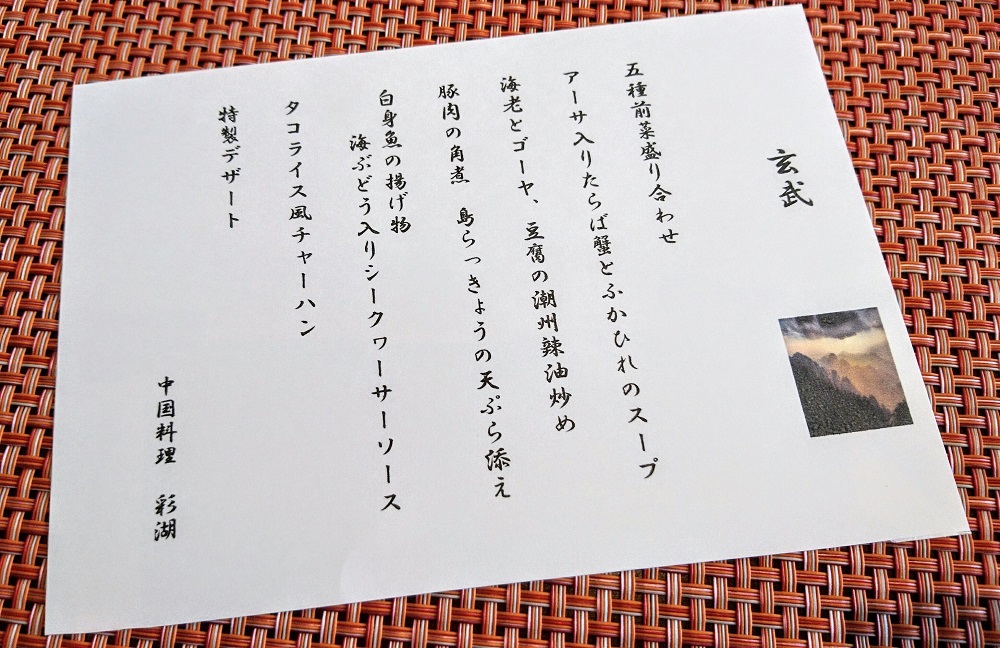 玄武
五種前菜盛り合わせ
アーサ入りたらば蟹とふかひれのスープ
海老とゴーヤ、豆腐の潮州辣油炒め
豚肉の角煮　島らっきょうの天ぷら添え
白身魚の揚げ物
海ぶどう入りシークヮーサーソース
タコライス風チャーハン
特製デザート
中国料理　彩湖